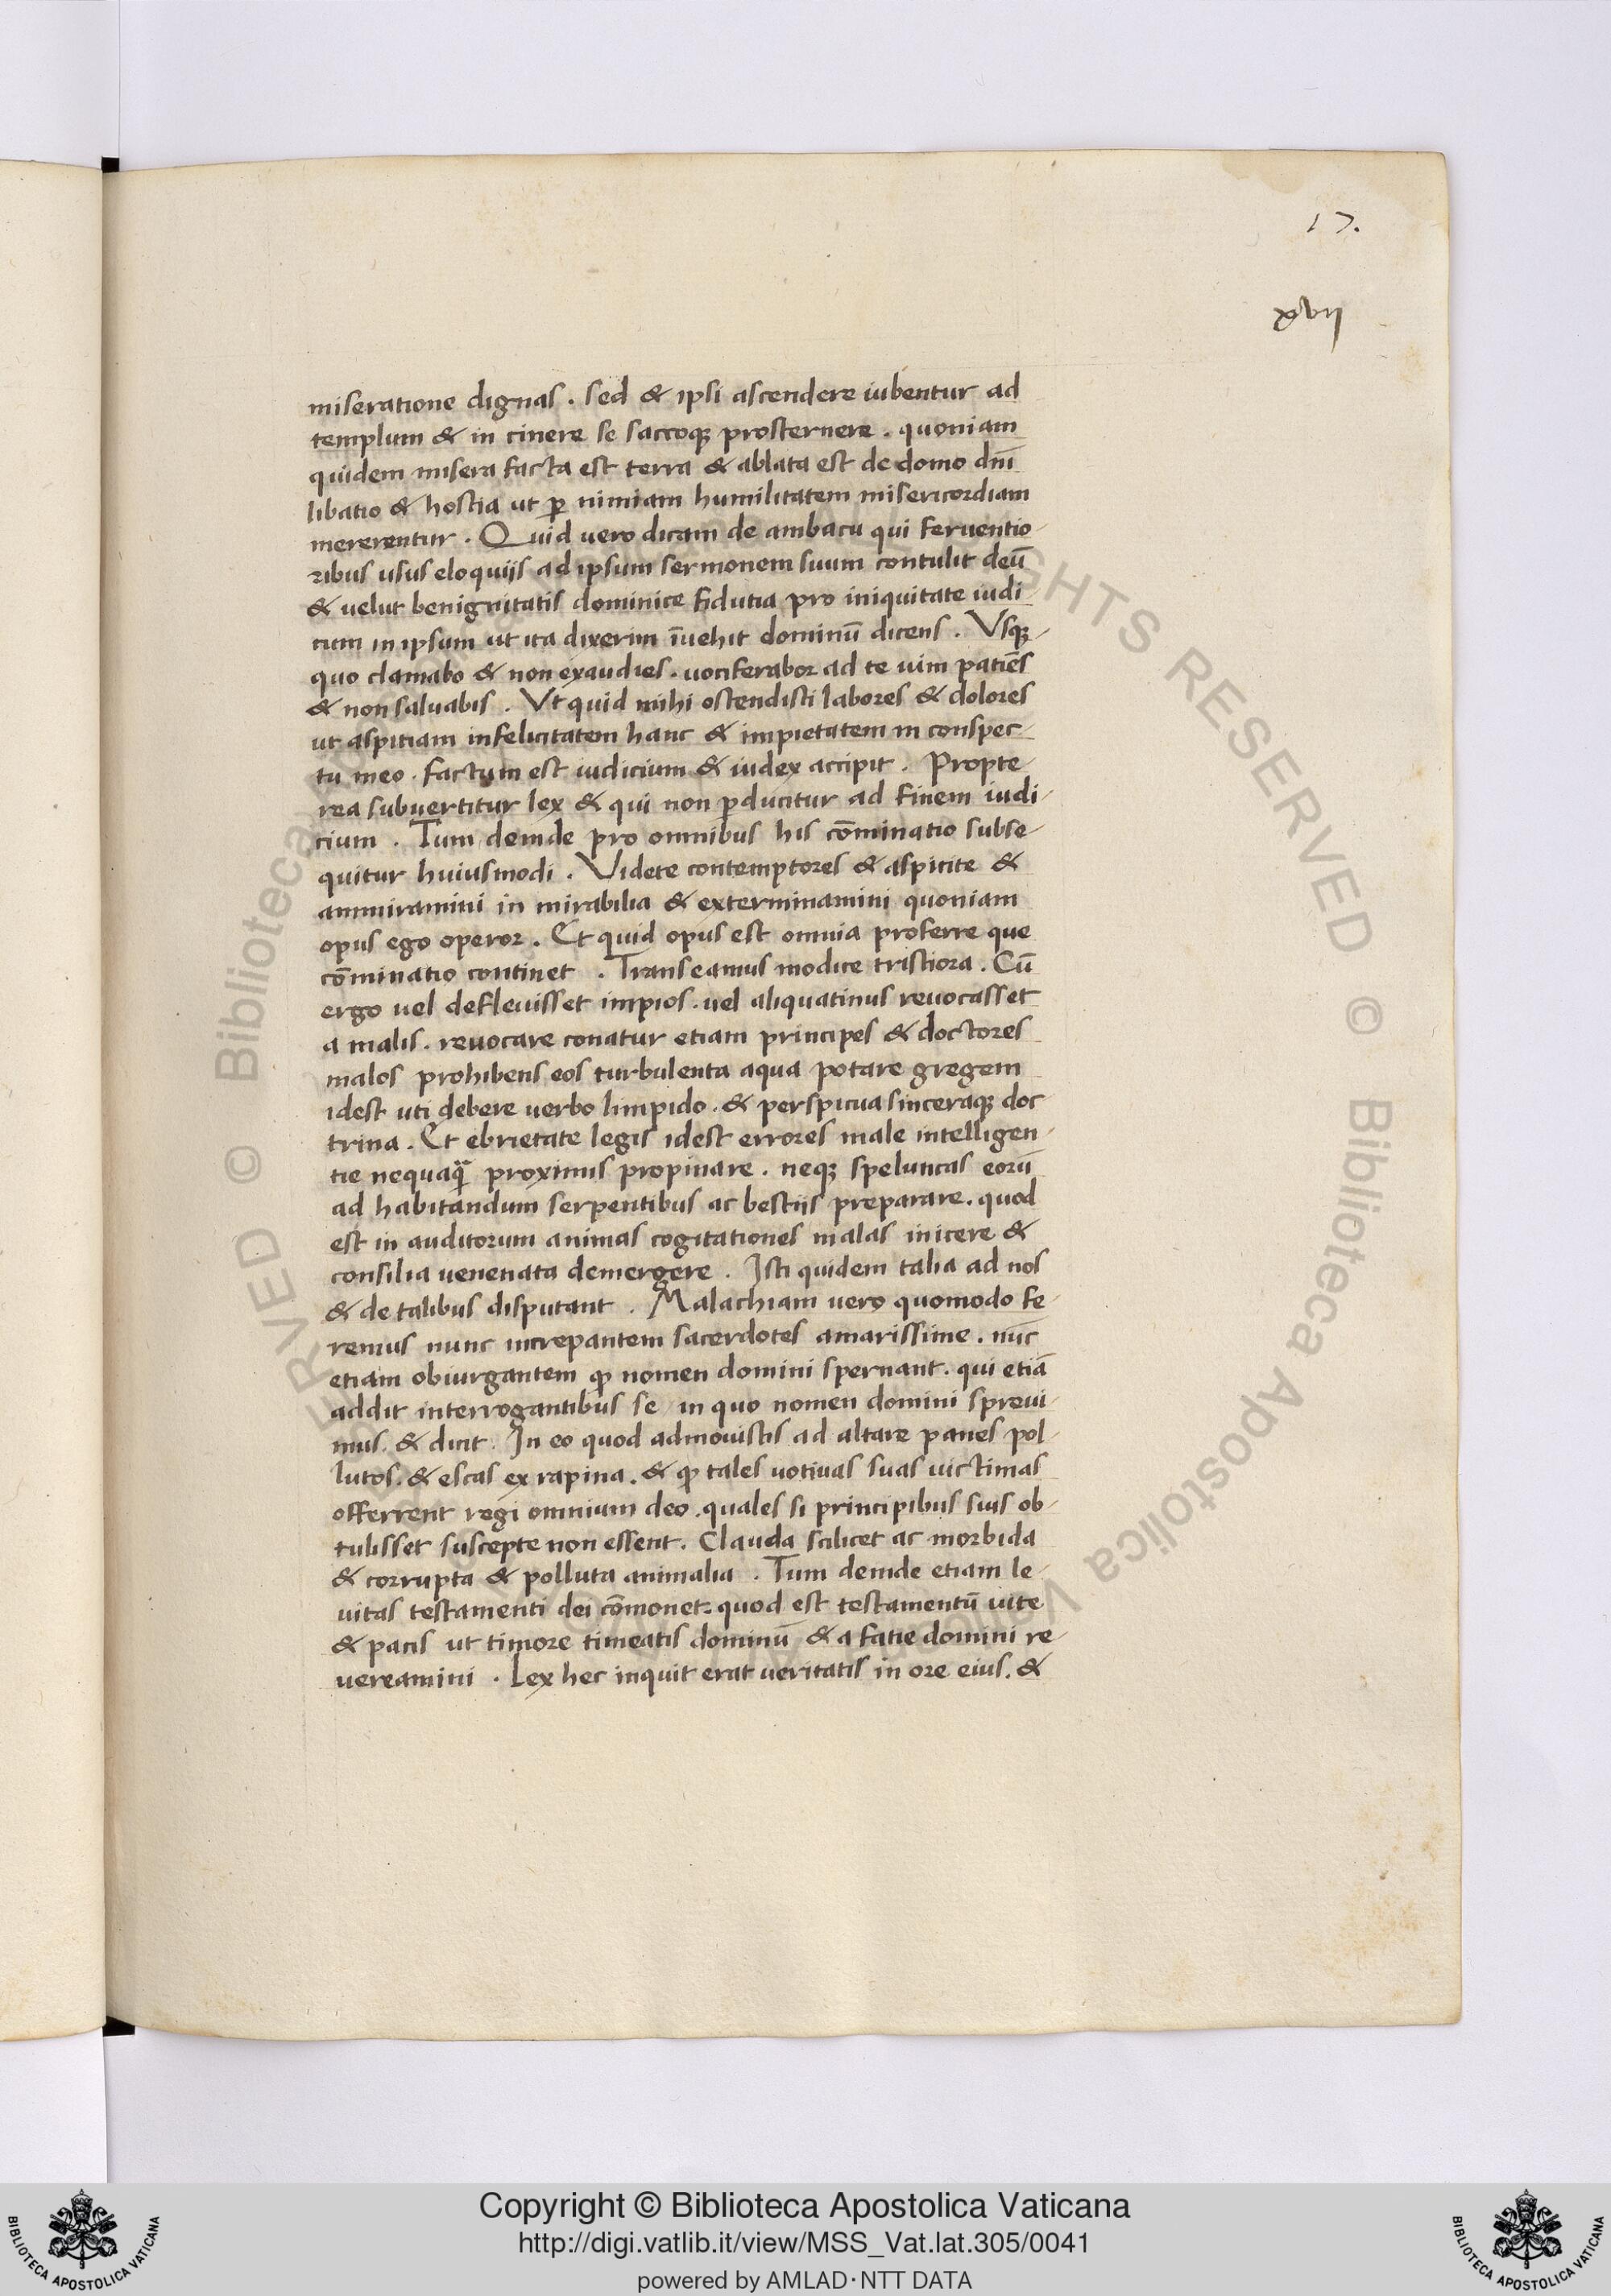 17.
xvij
miseratione dignas . sed & ipsi ascendere iubentur ad
templum & in cinere se saccoqꝫ prosternere . quoniam
quidem misera facta est terra & ablata est de domo dn̄i
libatio & hostia ut ꝑ nimiam humilitatem misericordiam
mererentur . Quid uero dicam de ambacu qui feruentio-
ribus usus eloquijs ad ipsum sermonem suum contulit deū
& uelut benignitatis dominice fidutia pro iniquitate iudi-
cum in ipsum ut ita dixerim īuehit dominū dicens . Vsqꝫ-
quo clamabo & non exaudies . uociferabor ad te uim patiēs
& non saluabis . Vt quid mihi ostendisti labores & dolores
ut aspitiam infelicitatem hanc & impietatem in conspec-
tu meo . factum est iudicium & iudex accipit . Propte-
rea subuertitur lex & qui non ꝑducitur ad finem iudi-
cium . Tum deinde pro omnibus his cōminatio subse-
quitur huiusmodi . Videte contemptores & aspicite &
ammiramini in mirabilia & exterminamini quoniam
opus ego operor . Et quid opus est omnia proferre que
cōminatio continet . Transeamus modice tristiora . Cū
ergo uel defleuisset impios . uel aliquatinus reuocasset
a malis . reuocare conatur etiam principes & doctores
malos prohibens eos turbulenta aqua potare gregem
idest uti debere uerbo limpido . & perspicua sinceraqꝫ doc-
trina . Et ebrietate legis idest errores male intelligen-
tie nequaq̄ proximis propinare . neqꝫ speluncas eorū
ad habitandum serpentibus ac bestijs preparare . quod
est in auditorum animas cogitationes malas inicere &
consilia uenenata demergere . Isti quidem talia ad nos
& de talibus disputant . Malachiam uero quomodo fe-
remus nunc increpantem sacerdotes amarissime . nūc
etiam obiurgantem ꝙ nomen domini spernant . qui etiā
addit interrogantibus se in quo nomen domini spreui-
mus . & dicit . In eo quod admouistis ad altare panes pol-
lutos . & escas ex rapina . & ꝙ tales uotiuas suas uictimas
offerrent regi omnium deo . quales si principibus suis ob-
tulisset suscepte non essent . Clauda scilicet ac morbida
& corrupta & polluta animalia . Tum deinde etiam le-
uitas testamenti dei cōmonet . quod est testamentū uite
& pacis ut timore timeatis dominū & a fatie domini re-
uereamini . Lex hec inquit erat ueritatis in ore eius . &
Copyright © Biblioteca Apostolica Vaticana
http://digi.vatlib.it/view/MSS_Vat.lat.305/0041
powered by AMLAD·NTT DATA
BIBLIOTECA APOSTOLICA VATICANA
BIBLIOTECA APOSTOLICA VATICANA